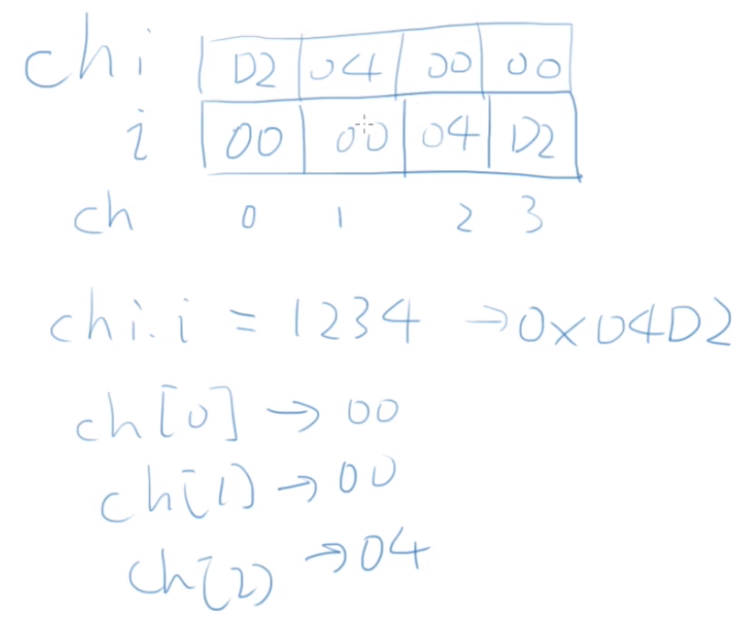 chi D2 04 00 00
i 00 00 04 D2
ch 0 1 2 3
chi.i = 1234 → 0x04D2
ch[0] → 00
ch(1) → 00
ch(2) → 04